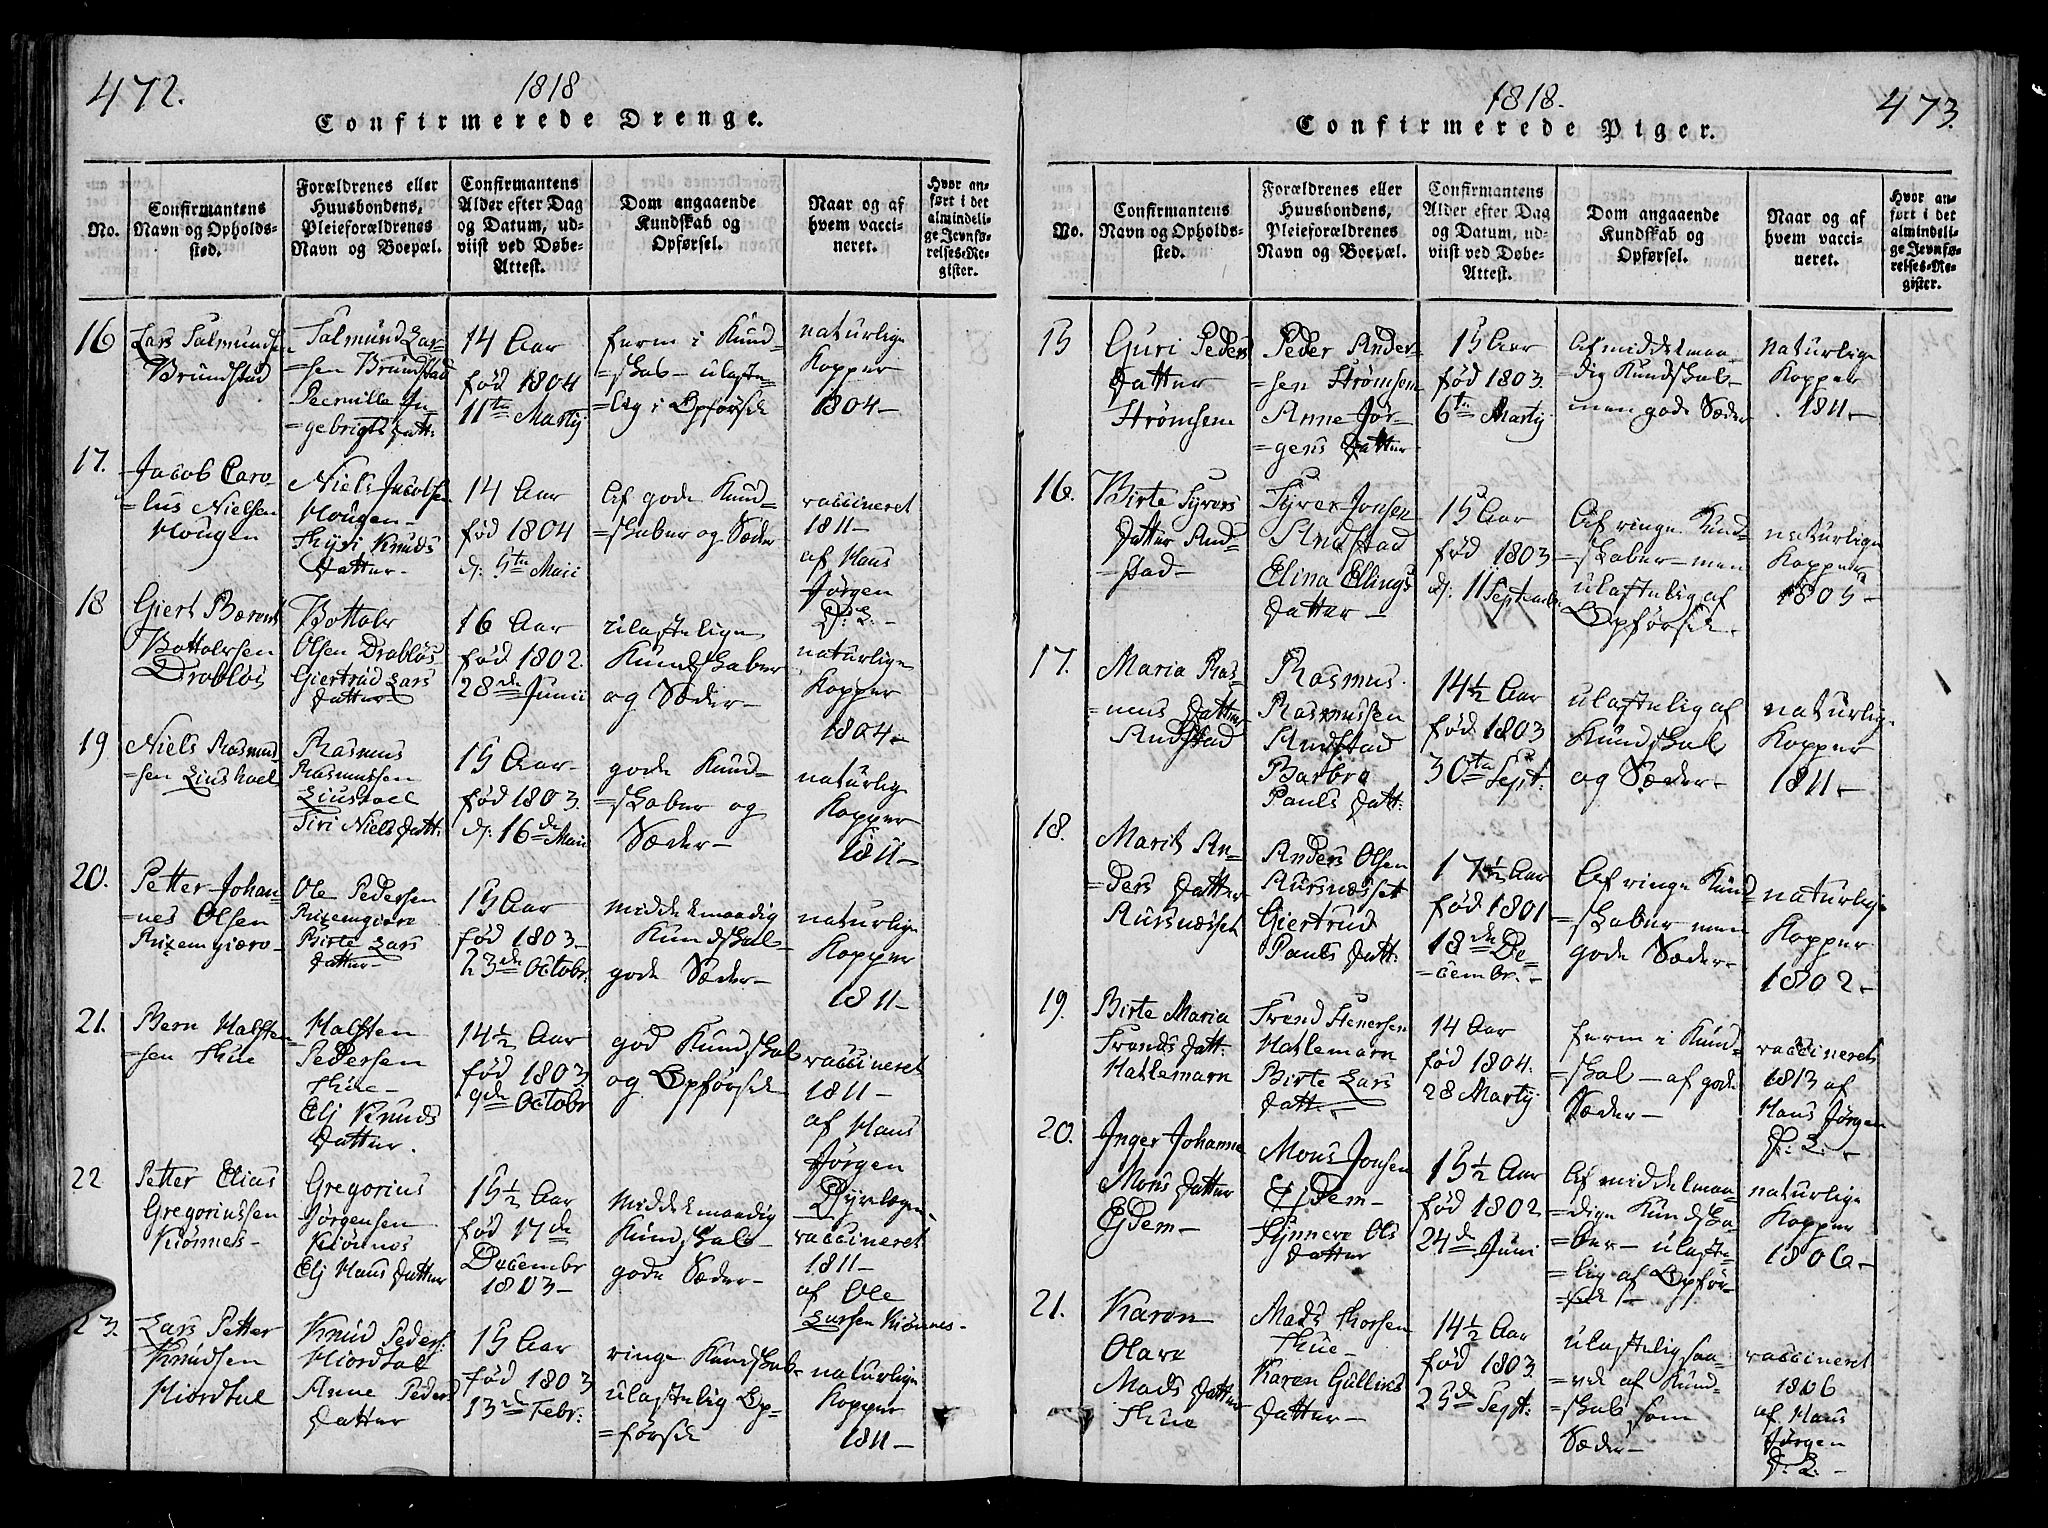 472.
1818
Confirmerede Drenge.
No.
Confirmantens
Navn og Opholds-
sted.
Forældrenes eller
Huusbondens,
Pleieforældrenes
Navn og Boepæl.
Confirmantens
Alder efter Dag
og Datum, ud-
viist ved Døbe-
Attest.
Dom angaaende
Kundskab og
Opførsel.
Naar og af
hvem vacci-
neret.
Hvor an-
ført i det
almindeli-
ge Jevnfø-
relses-Re-
gister.
16
Lars Salmundsen
Brundstad
Salmund Lar-
=sen Brundstad
Peernille In-
=gebrigts Datt:
14 Aar
fød 1804
11te Martij
ferm i Kund-
=skab - ulaste-
=lig i Opførsel
naturlige
Kopper
1804-
17.
Jacob Caro-
=lus Nielsen
Hougen
Niels Jacobsen
Hougen-
Thyri Knuds
Datter-
14 Aar
fød 1804
d: 5te Maii
Af gode Kund-
=skaber og Sæder
vaccineret
1811-
af Hans
Jørgen
D: L:-
18
Giert Bærent
Bottolvsen
Drabløs
Bottolv
Olsen Drabløs
Giertrud Lars
Datter-
16 Aar
fød 1802.
28de Junii
ulastelige
Kundskaber
og Sæder-
naturlige
Kopper
1804-
19
Niels Rasmus-
=sen Liushoel
Rasmus
Rasmussen
Liushoel
Siri Niels Datt:
15 Aar-
fød 1803.
d: 16de Maii
gode Kund-
=skaber og
Sæder-
naturlige
Kopper
1811-
20.
Petter Johan-
=nes Olsen
Ole Pedersen
Birte Lars
Datter-
15 Aar
fød 1803-
23de Octobr:
middelmaadig
Kundskab-
gode Sæder-
naturlige
Kopper
1811-
21.
Bern Halsten-
=sen Thue
Halsten
Pedersen
Thue-
Elj Knuds
Datter.
14½ Aar
fød 1803.
9de Octobr
god Kundskab
og Opførsel
vaccineret
1811-
af Hans
Jørgen
Dyrlægen-
22
Petter Elias
Gregoriussen
Kiønnes-
Gregorius
Jørgensen
Kiønnes
Elj Hans Datter
15½ Aar
fød 17de
Decembr
1803-
middelmaadig
Kundskab-
gode Sæder-
vaccineret
1811-
af Ole
Larsen Kiønnes-
23.
Lars Petter
Knudsen
Hiordtal
Knud Peders:
Hiordtal
Anne Peders
Datter
15 Aar
fød 1803
13de Febr:
ringe Kundskab-
ulastelig Op-
=førsel
naturlige
Kopper
1811-
1818.
473.
Confirmerede Piger.
No.
Confirmantens
Navn og Opholds-
sted.
Forældrenes eller
Huusbondens,
Pleieforældrenes
Navn og Boepæl.
Confirmantens
Alder efter Dag
og Datum, ud-
viist ved Døbe-
Attest.
Dom angaaende
Kundskab og
Opførsel.
Naar og af
hvem vacci-
neret.
Hvor an-
ført i det
almindeli-
ge Jevnfø-
relses-Re-
gister.
15
Guri Peders
Datter
Strømsem
Peder Ander-
=sen Strømsem
Anne Jør-
=gens Datter
15 Aar
fød 1803.
6te Martij
Af middelmaa-
dig Kundskab-
men gode Sæder
naturlige
Kopper
1811-
16.
Birte Syvers
Datter And-
=stad-
Syver Jonsen
Andstad
Elina Ellings
Datter-
15 Aar
fød 1803
d: 11 Septembr
Af ringe Kund-
=skaber-men
ulastelig af
Opførsel-
naturlige
Kopper
1805-
17.
Maria Ras-
=mus Datter
Andstad
Rasmus
Rasmussen
Andstad
Barbro
Pauls Datt:
14½ Aar
fød 1803
30te Sept:
ulastelig af
Kundskab
og Sæder-
naturlige
Kopper
1811-
18.
Marit An-
=ders Datter
Aursnæsset
Anders Olsen
Aursnæsset
Giertrud
Pauls Datt:
17½ Aar
fød 1801
18de De-
=cembr.-
Af ringe Kund-
=skaber men
gode Sæder-
naturlige
Kopper
1802-
19.
Birte Maria
Tronds Datt:
Hatlemarn
Trond Stenersen
Hatlemarn
Birte Lars
Datt:-
14 Aar
fød 1804.
28 Martij
ferm i Kund-
=skab-af gode
Sæder-
vaccineret
1813 af
Hans Jørgen
D: L:-
20.
Inger Johanne
Mons Datter
Ejdem-
Mons Jonsen
Ejdem-
Synneve Ols
Datter
15½ Aar
fød 1802
24de Juni
Af middelmaa-
=dige Kundska-
=ber-ulaste-
=lig af Opfør-
=sel-
naturlige
Kopper
1806-
21.
Karen
Olave
Mads Datter
Thue
Mads Thorsen
Thue-
Karen Gullens
Datter-
14½ Aar
fød 1803.
25de Sept:
ulastelig saa-
=vel af Kund-
=skab, som
Sæder-
vaccineret
1806
af Hans
Jørgen
D: L:-